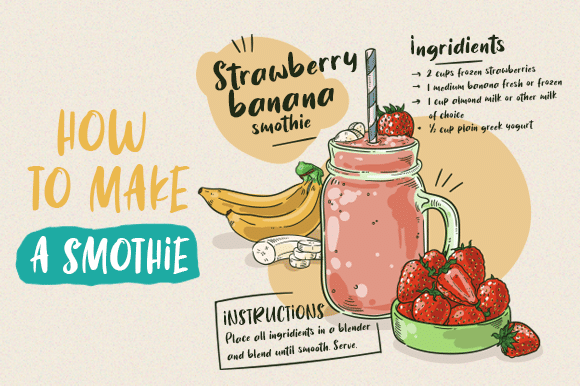 HOW
TO MAKE
A SMOTHiE
Strawberry
banana
smothie
ingridients
→ 2 cups frozen strawberries
→ 1 medium banana fresh or frozen
→ 1 cup almond milk or other milk
of choice
• ½ cup plain greek yogurt
iNSTRUCTiONS
Place all ingridients in a blender
and blend until smooth. Serve.